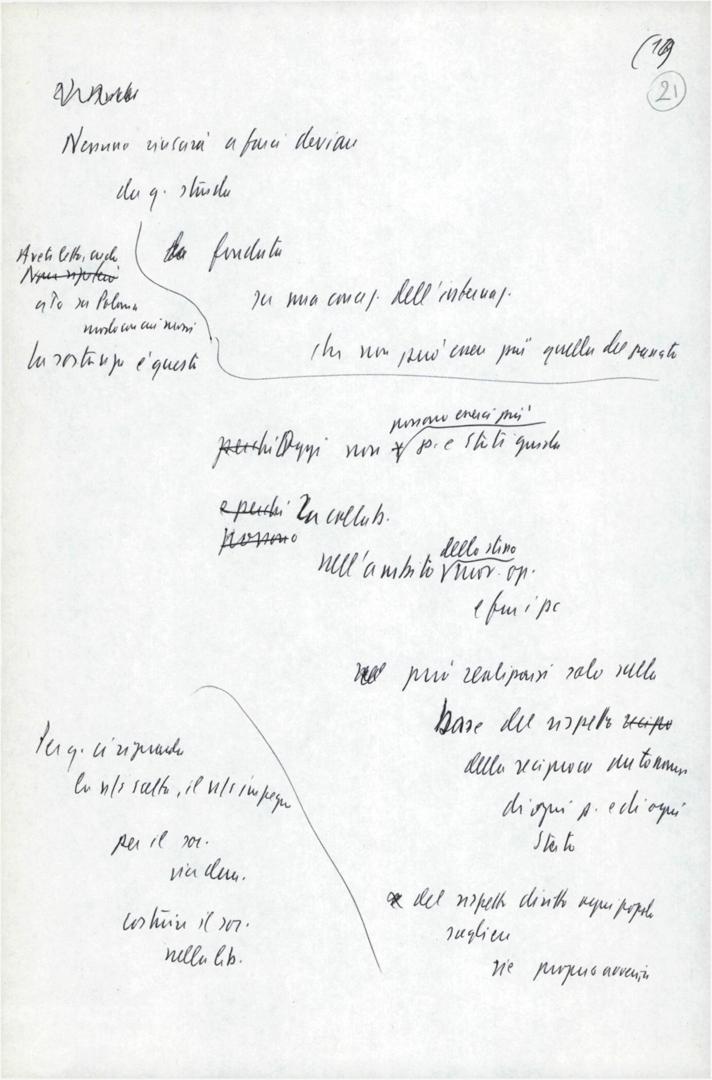 (19)
21
Nessuno riuscirà a farci deviare
da q. strada
fondata
su una concez. dell'internaz.
che non può essere più quella del passato
Avete letto, credo
Non ripeterò
cito su Polonia
la sostanza è questa
possono esserci più
perchè Oggi non p. e Stati guida
e perchè La collab.
possono
dello stesso
nell'ambito mov. op.
e fra i pc
può realizzarsi solo sulla
base del rispetto recipro
della reciproca autonomia
di ogni p. e di ogni
Stato
del rispetto diritto ogni popolo
scegliere
vie proprio avvenire
Per q. ci riguarda
la n/s scelta, il n/s impegno
per il soc.
via dem.
costruire il soc.
nella lib.